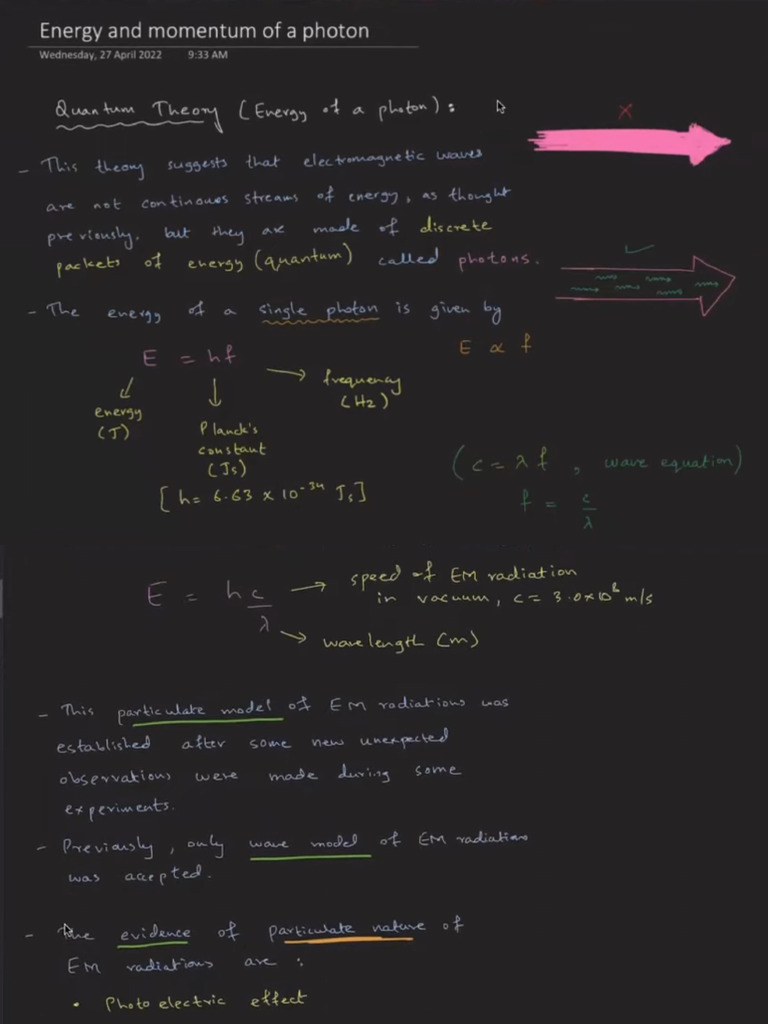 Energy and momentum of a photon
Wednesday, 27 April 2022 9:33 AM
Quantum Theory (Energy of a photon):
- This theory suggests that electromagnetic waves
are not continous streams of energy, as thought
previously. but they are made of discrete
packets of energy (quantum) called photons.
- The energy of a single photon is given by
E = hf
E ∝ f
energy
(J)
Planck's
constant
(Js)
frequency
(Hz)
[h= 6.63 × 10⁻³⁴ Js]
(c = λ f , wave equation)
f = c/λ
E = h c/λ
speed of EM radiation
in vacuum, c = 3.0×10⁸ m/s
wavelength (m)
- This particulate model of EM radiations was
established after some new unexpected
observations were made during some
experiments.
- Previously, only wave model of EM radiations
was accepted.
- The evidence of particulate nature of
EM radiations are :
• Photoelectric effect